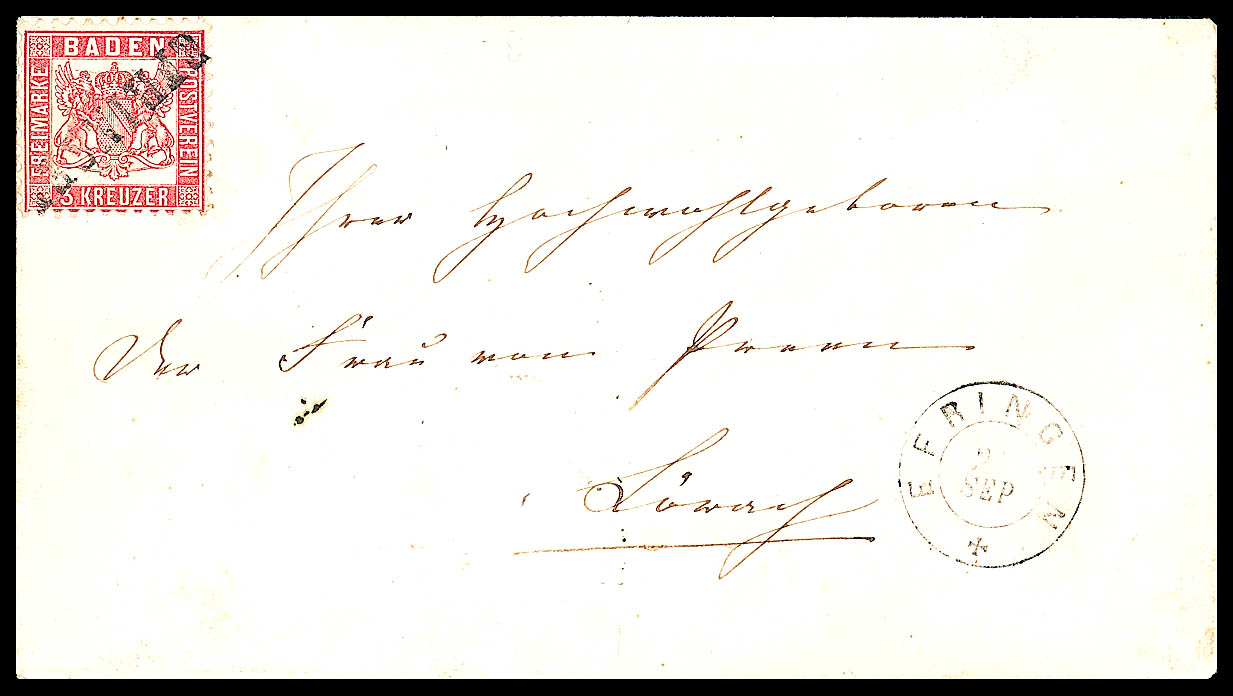 BADEN
FREIMARKE
POSTVEREIN
3 KREUZER
Ihrer Hochwohlgeboren
Der Frau von Preen
Lörrach
EFRINGEN
2
SEP